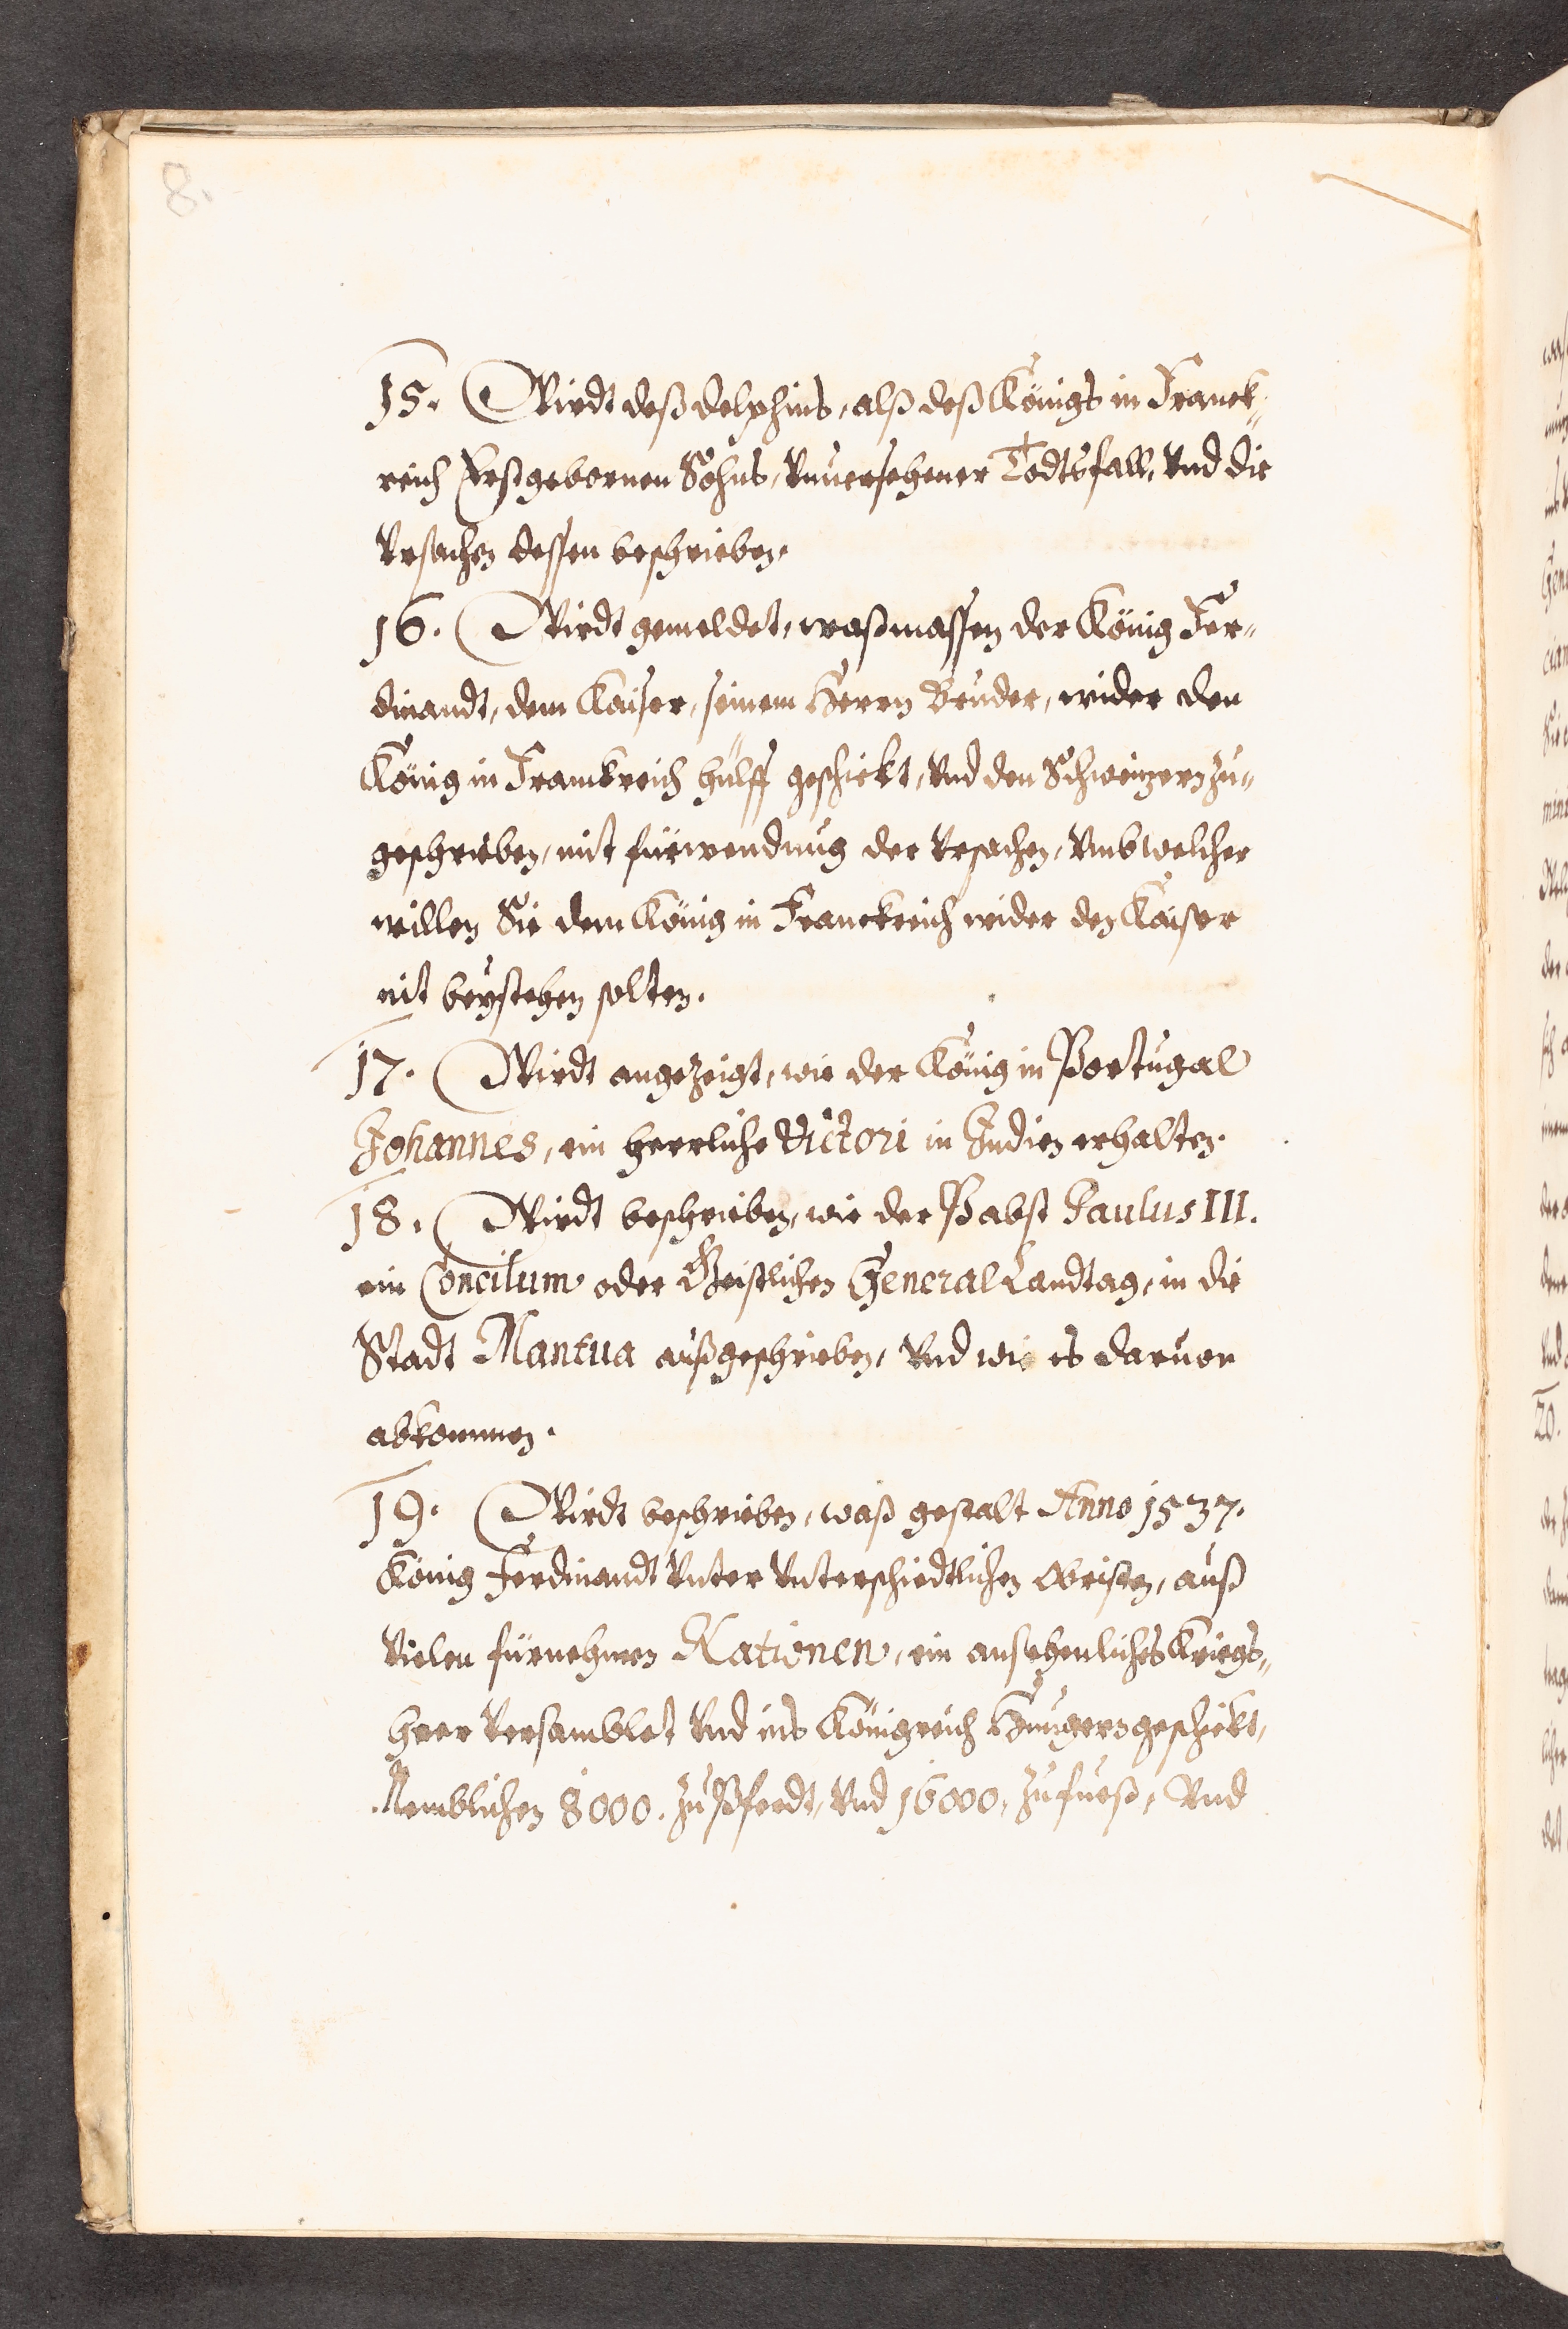 8.
15. Wirdt deß delphins, alß deß Königs in Franck„
reich Erstgebornen Sohns, Vnuersehener Todtsfall, Vnd die
Vrsachen dessen beschrieben.
16. Wirdt gemeldet, waßmassen der König Fer„
dinandt, dem Kaiser, seinem Herrn Bruder, wider den
König in Frankreich hülff geschickt, Vnd den Schweitzern zu„
geschrieben, mit fürwendung der Vrsachen, Vmb welcher
willen Sie dem König in Franckreich wider den Kaiser
nit beystehen solten.
17. Wirdt angezeigt, wie der König in Portugal
Johannes, ein herrliche Victori in Indien erhalten.
18. Wirdt beschrieben, wie der Pabst Paulus III.
ein Concilum oder Geistlichen General Landtag, in die
Stadt Mantua außgeschrieben, Vnd wie es daruon
abkommen.
19. Wirdt beschrieben, waß gestalt Anno 1537.
König Ferdinandt Vnter Vnterschiedtlichen Obristen, auß
Vielen fürnehmen Nationen, ein ansehenliches Kriegs„
heer Versamblet Vnd ins Königreich Hungern geschickt,
Nemblichen 8000. zu Pferdt, Vnd 16000, zu fuess, Vnd